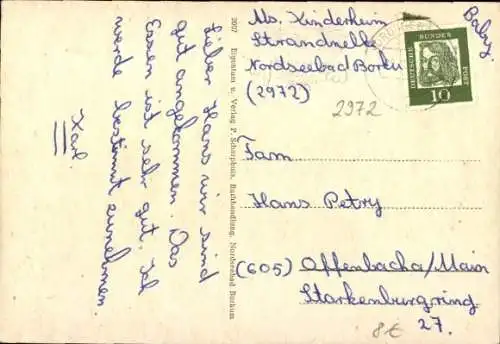 Lieber Hans wir sind
gut angekommen. Das
Essen ist sehr gut. Ich
werde bestimmt zunehmen.
Karl.
2017 Eigentum u. Verlag P. Scharphuis, Buchhandlung, Nordseebad Borkum
Abs. Kinderheim
Strandnelke
Nordseebad Borku
(2972)
2972
DEUTSCHE BUNDESPOST
10
Fam
Hans Petry
(605) Offenbacha/Main
Starkenburgring
27.
8€